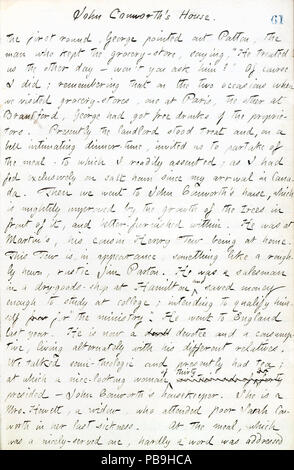 John Conworth's House.
61
the first round, George pointed out Patton, the
man who kept the grocery-store, saying, "He treated
us the other day — won't you ask him?" Of course
I did; remembering that on the two occasions when
we visited grocery-stores, one at Paris, the other at
Brantford, George had got free drinks of the proprie-
tors. Presently the landlord stood treat and, on a
bell intimating dinner-time, invited us to partake of
the meal – to which I readily assented, as I had
fed exclusively on salt ham since my arrival in Cana-
da. Then we went to John Conworth's house, which
is mightily improved by the growth of the trees in
front of it, and better furnished within. He was at
Martin's, his cousin Henry Tew being at home.
This Tew is, in appearance, something like a rough-
ly hewn, rustic Jim Paston. He was a salesman
in a dry-goods-shop at Hamilton and saved money
enough to study at college; intending to qualify him-
self for the ministry. He went to England
last year. He is now a devotee and a consump-
tive, living alternately with his different relatives.
We talked semi-theologic and presently had tea;
at which a nice-looking woman of thirty
presided – John Conworth's housekeeper. She is a
Mrs. Howell, a widow, who attended poor Sarah Con-
worth in her last sickness. At the meal, which
was a nicely-served one, hardly a word was addressed
PB9HCA